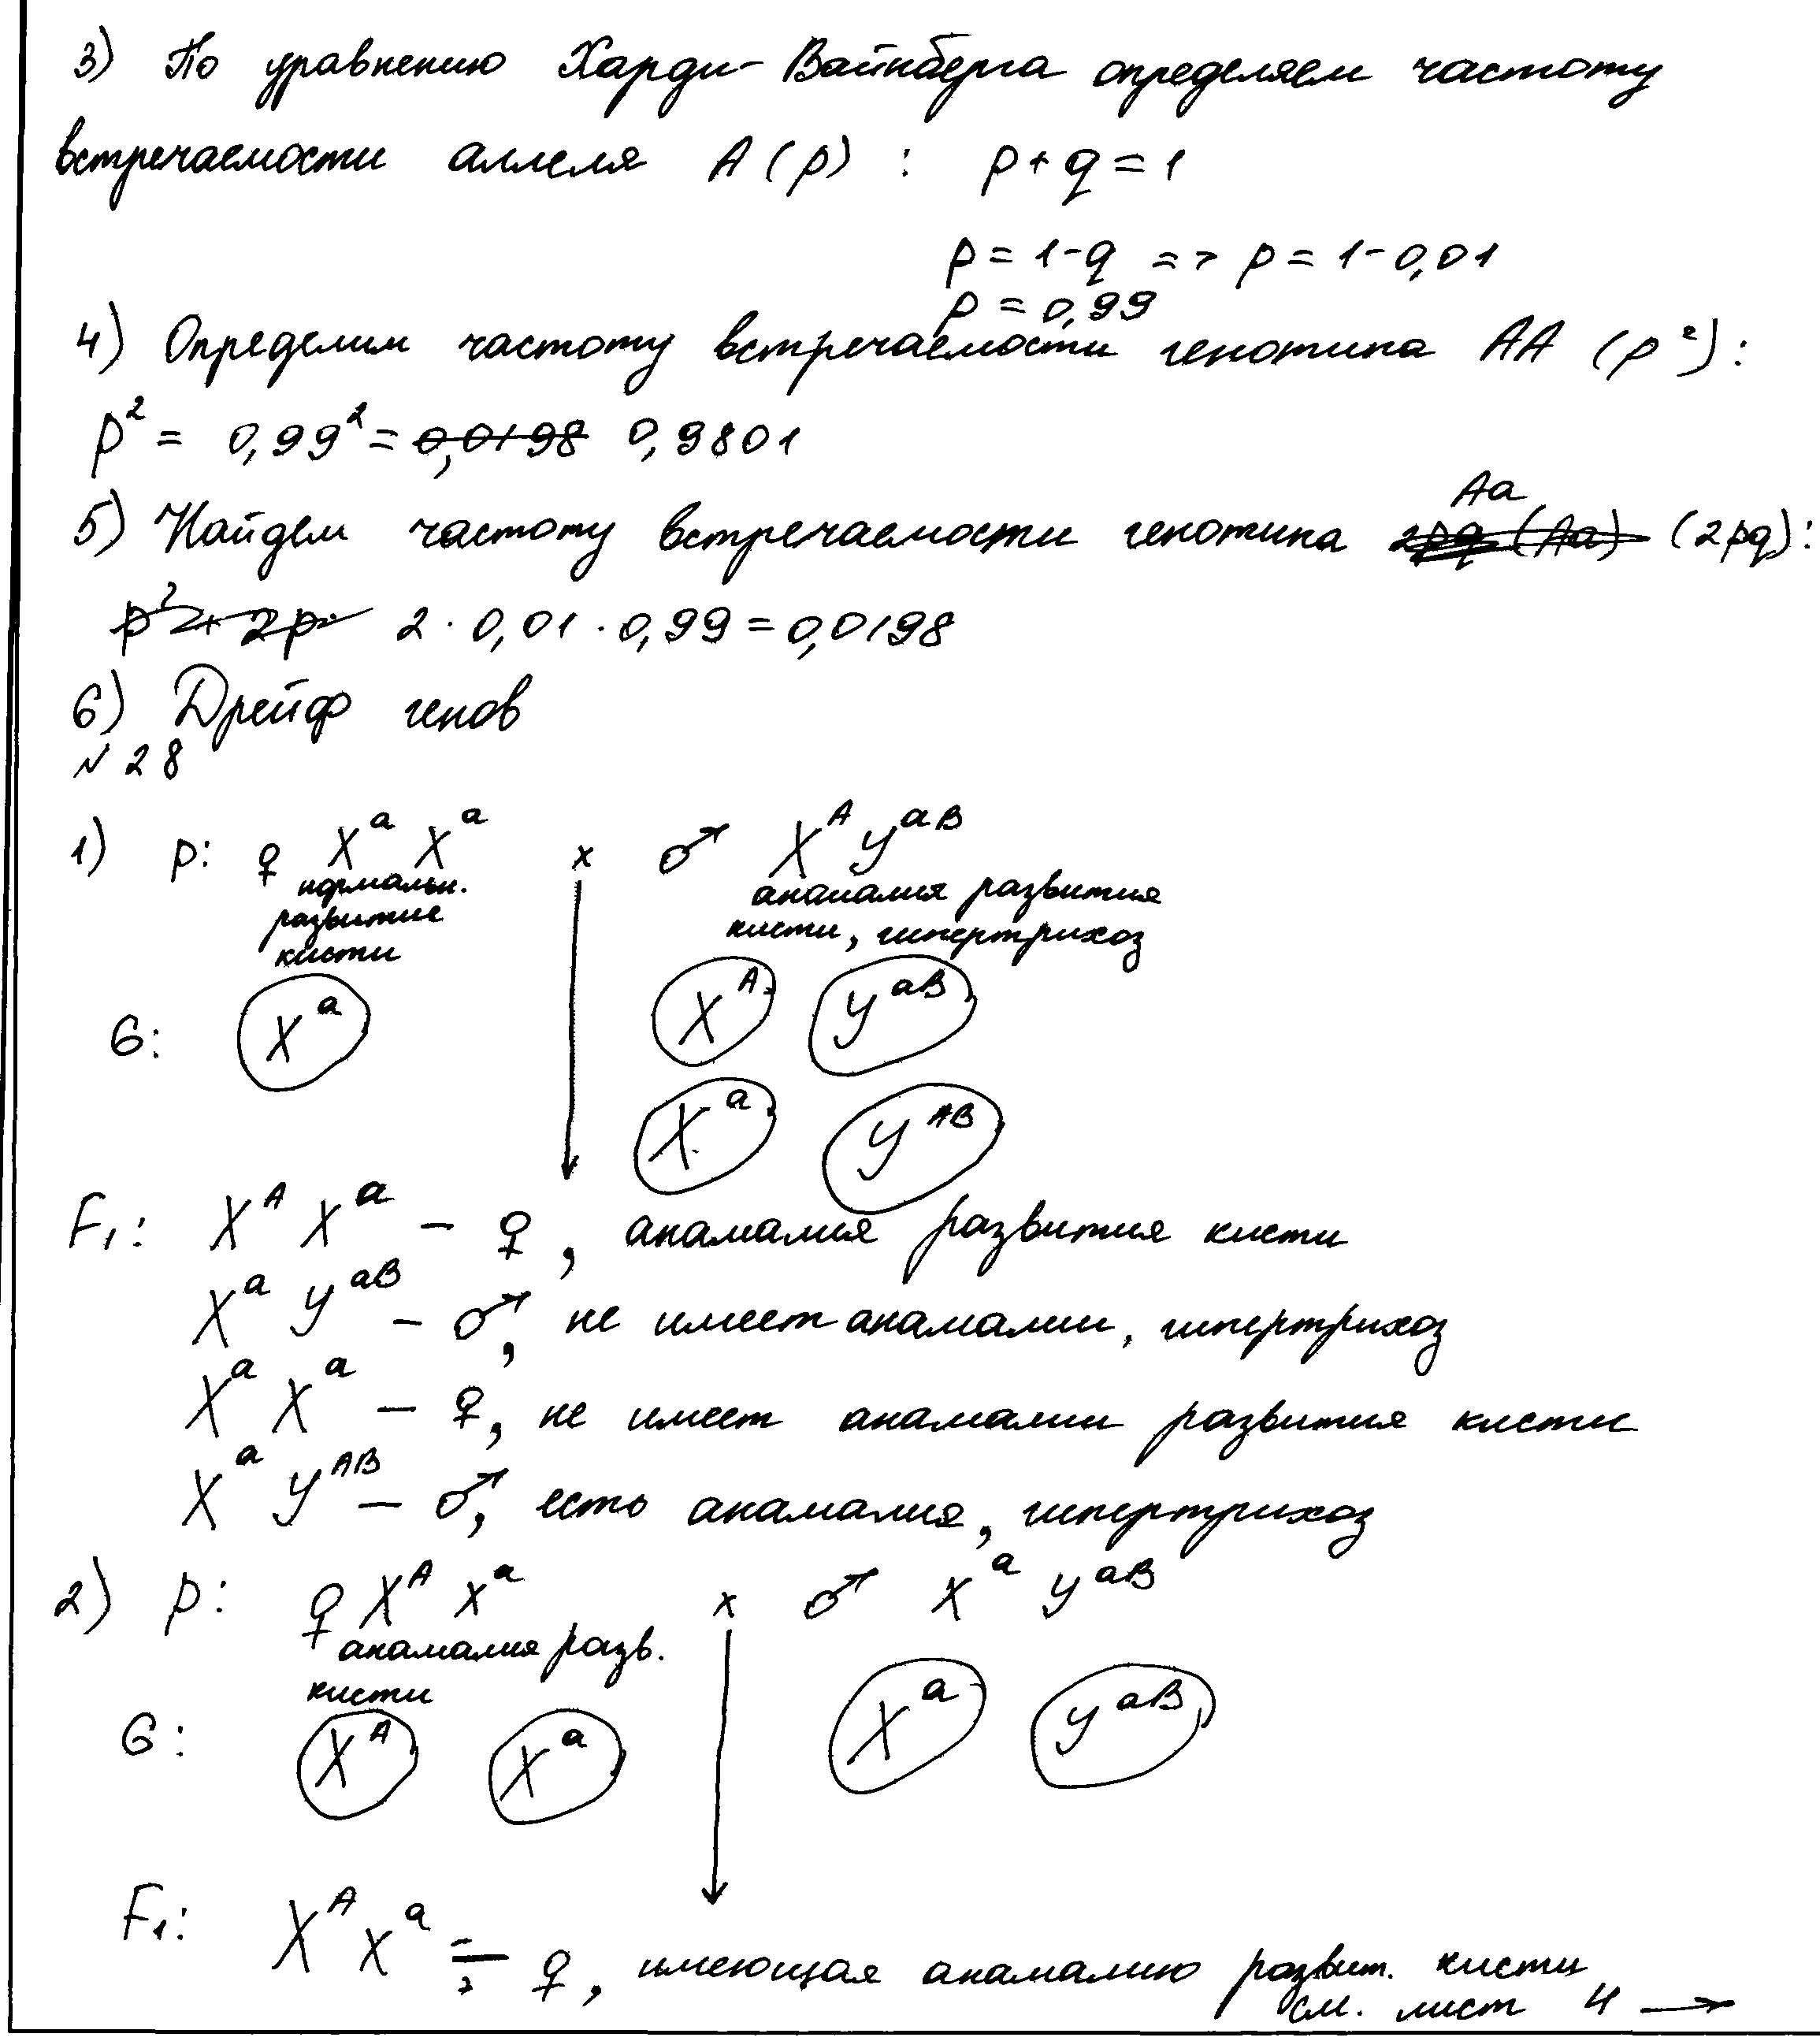 3) По уравнению Харди-Вайнберга определяем частоту
встречаемости аллеля A (p) : p + q = 1
p = 1-q => p = 1-0,01
p = 0,99
4) Определим частоту встречаемости генотипа AA (p²):
p² = 0,99² = 0,0198 0,9801
Aa
5) Найдем частоту встречаемости генотипа 2pq (Aa) (2pq):
p² + 2p 2 · 0,01 · 0,99 = 0,0198
6) Дрейф генов
№ 28
1) P: ♀ Xᵃ Xᵃ x ♂ Xᴬ Yᵃᴮ
нормальн. анамалия развития
развитие кисти, гипертрихоз
кисти
G: Xᵃ Xᴬ Yᵃᴮ
Xᵃ Yᴬᴮ
F₁: Xᴬ Xᵃ - ♀, анамалия развития кисти
Xᵃ Yᵃᴮ - ♂, не имеет анамалии, гипертрихоз
Xᵃ Xᵃ - ♀, не имеет анамалии развития кисти
Xᵃ Yᴬᴮ - ♂, есть анамалия, гипертрихоз
2) P: ♀ Xᴬ Xᵃ x ♂ Xᵃ Yᵃᴮ
анамалия разв.
кисти
G: Xᴬ Xᵃ Xᵃ Yᵃᴮ
F₁: Xᴬ Xᵃ - ♀, имеющая анамалию развит. кисти
см. лист 4 →